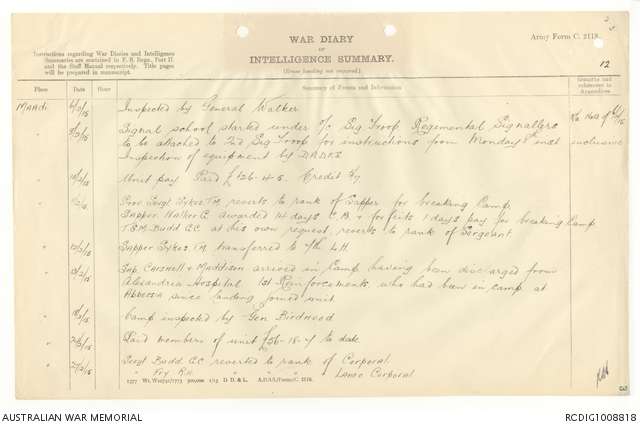 Army Form C. 2118.
WAR DIARY
or
INTELLIGENCE SUMMARY.
(Erase heading not required.)
Instructions regarding War Diaries and Intelligence
Summaries are contained in F. S. Regs., Part II.
and the Staff Manual respectively. Title pages
will be prepared in manuscript.
12
Place Date Hour Summary of Events and Information Remarks and references to Appendices
Maadi Inspected by General Walker
" Signal school started under o/c Sig Troop Regimental Signallers
to be attached to 2nd Sig Troop for instructions from Monday 8th inst inclusive
Inspection of equipment by DADOS
" Unit pay Paid £126-4-5. Credit
" Prov Sergt Sykes T.M. reverts to rank of Sapper for breaking Camp.
Sapper Walker C. awarded 14 days C.B. & forfeits 1 days pay for breaking Camp
T.S.M. Budd A.C. at his own request, reverts to rank of Sergeant
" Sapper Sykes, T.M. transferred to 7th L.H.
" Sap. Carswell & Maddison arrived in Camp having been discharged from
Alexandria Hospital 1st Reinforcements who had been in camp at
since landing joined unit
" Camp inspected by Gen Birdwood
" Paid members of unit £56-18-4 to date
" 27/2/15 Sergt Budd A.C. reverted to rank of Corporal
" Fry R.H. " " " " Lance Corporal
D. D. & L. A.D.S.S./Forms/C. 2118.
AUSTRALIAN WAR MEMORIAL
RCDIG1008818